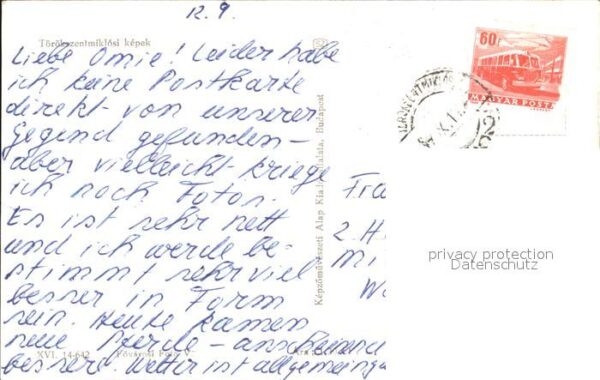 12.9.
Törökszentmiklósi képek
Liebe Omie! Leider habe
ich keine Postkarte
direkt von unserer
Gegend gefunden –
aber vielleicht kriege
ich noch Fotos.
Es ist sehr nett
und ich werde be-
stimmt sehr viel
besser in Form
sein. Heute kamen
neue Pferde – anscheinend
besser. Wetter ist allgemein
XVI. 14-642 Fővárosi
Képzőművészeti Alap Kiadóvállalata, Budapest
60f
MAGYAR POSTA
Fra
2. H
Mi
privacy protection
Datenschutz